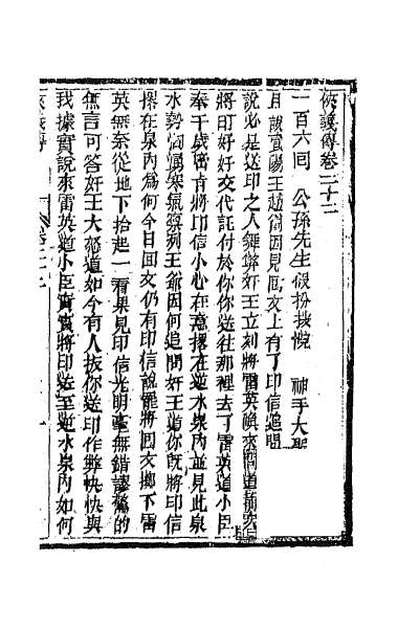 俠義傳卷二十二
一百六回 公孫先生假扮按院 神手大聖
且說襄陽王趙爵因見回文上有了印信追問
說必是送印之人舞弊奸王立刻將雷英喚來問道前次
將印好好交代託付於你你送往那裡去了雷英道小臣
奉千歲密旨將印信小心在意撂在逆水泉內並見此泉
水勢洶湧寒氣凜冽王爺因何追問奸王道你既將印信
撂在泉內為何今日回文仍有印信說罷將回文擲下雷
英無奈從地下拾起一看果見印信光明毫無錯謬驚的
無言可答奸王大怒道如今有人扳你送印作弊快快與
我據實說來雷英道小臣實實將印送至逆水泉內如何